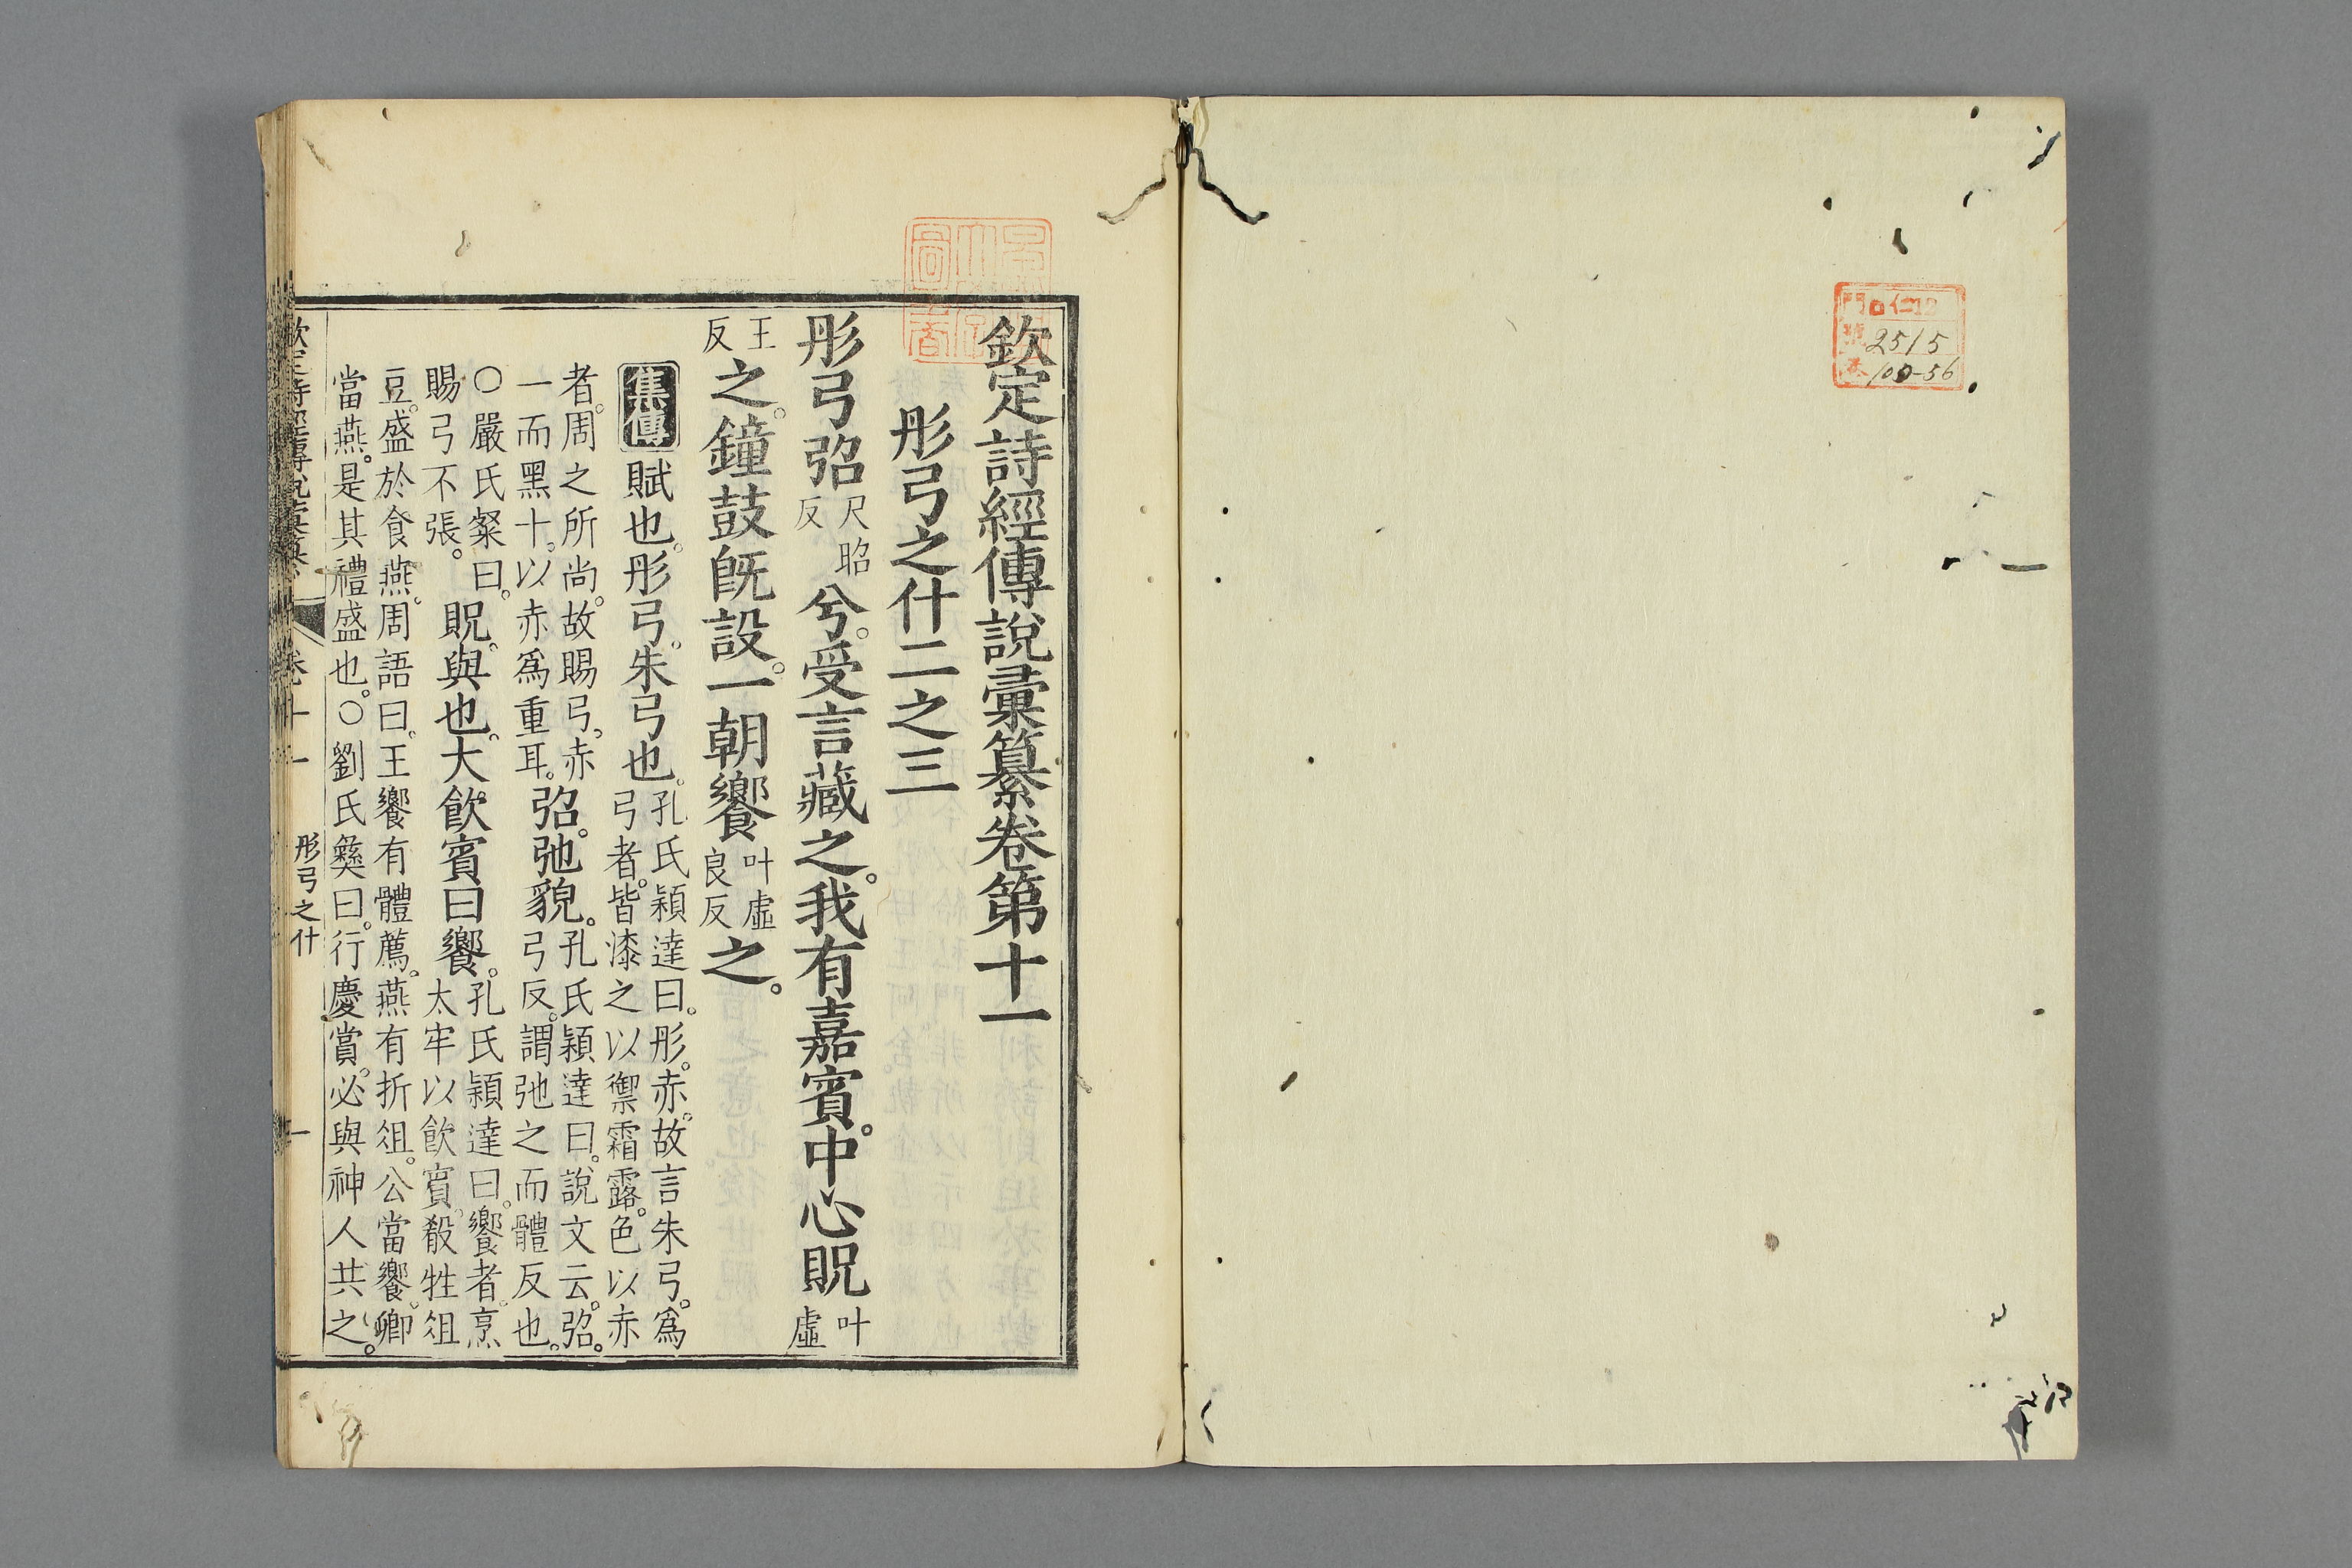 門 口仁12
號 2515
100-56
欽定詩經傳說彙纂卷第十一
彤弓之什二之三
彤弓弨尺昭反兮。受言藏之。我有嘉賓。中心貺叶虛
王反之。鐘鼓旣設。一朝饗叶虛良反之。
集傳賦也。彤弓。朱弓也。孔氏穎達曰。彤。赤。故言朱弓。爲弓者。皆漆之以禦霜露。色以赤
者。周之所尚。故賜弓。赤一而黑十。以赤爲重耳。弨。弛貌。孔氏穎達曰。說文云。弨。弓反。謂弛之而體反也。
○嚴氏粲曰。賜弓不張。貺。與也。大飮賓曰饗。孔氏穎達曰。饗者。烹太牢以飮賓。殽牲俎
豆。盛於食燕。周語曰。王饗有體薦。燕有折俎。公當饗。卿
當燕。是其禮盛也。○劉氏彝曰。行慶賞。必與神人共之。
欽定詩經傳說彙纂 卷十一 彤弓之什 一